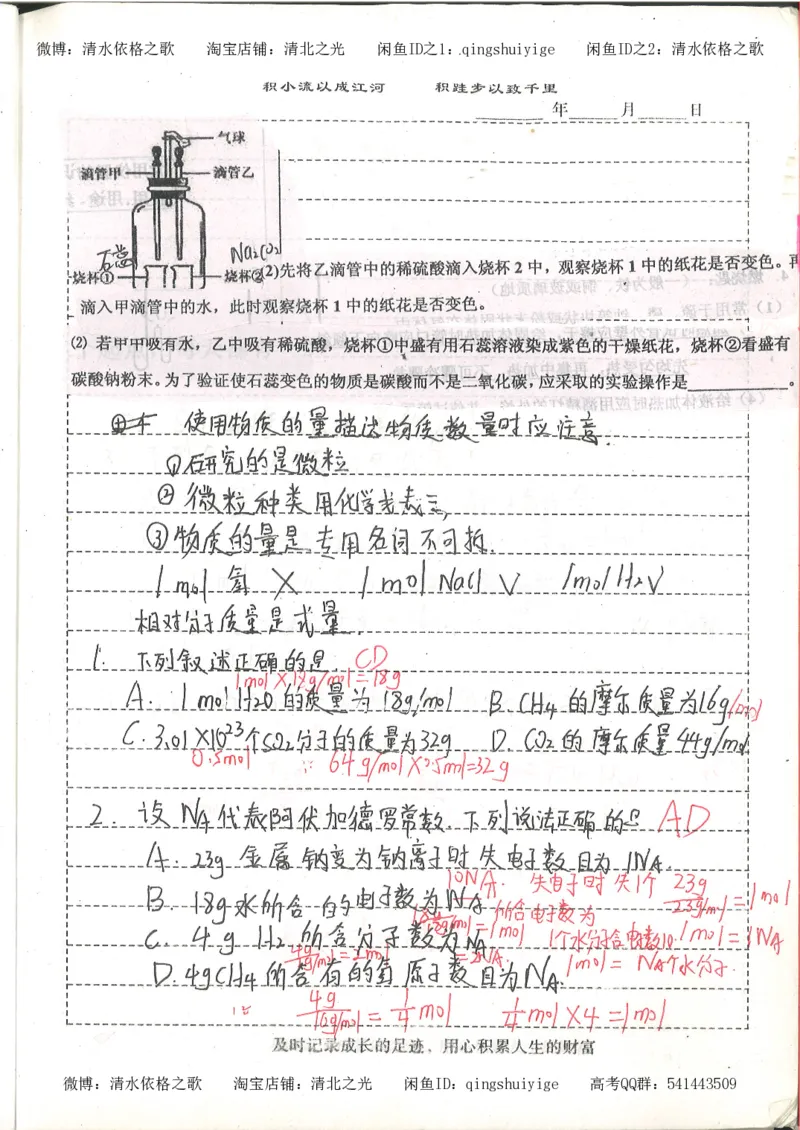 微博：清水依格之歌 淘宝店铺：清北之光 闲鱼ID之1：.qingshuiyige 闲鱼ID之2：清水依格之歌
积小流以成江河 积跬步以致千里
年 月 日
气球
滴管甲 滴管乙
石蕊 Na2CO3
烧杯① 烧杯②
(2)先将乙滴管中的稀硫酸滴入烧杯 2 中，观察烧杯 1 中的纸花是否变色。再
滴入甲滴管中的水，此时观察烧杯 1 中的纸花是否变色。
⑵ 若甲甲吸有水，乙中吸有稀硫酸，烧杯①中盛有用石蕊溶液染成紫色的干燥纸花，烧杯②看盛有
碳酸钠粉末。为了验证使石蕊变色的物质是碳酸而不是二氧化碳，应采取的实验操作是____。
使用物质的量描述物质数量时应注意.
①研究的是微粒
②微粒种类用化学式表示
③物质的量是专用名词不可拆.
1mol 氢 × 1mol NaCl √ 1mol H2 √
相对分子质量是式量.
1. 下列叙述正确的是 CD
1mol×18g/mol=18g
A. 1mol H2O的质量为18g/mol B. CH4的摩尔质量为16g/mol
C. 3.01×10²³个SO2分子的质量为32g D. CO2的摩尔质量44g/mol
0.5mol ∵ 64g/mol×0.5mol=32g
2. 设NA代表阿伏加德罗常数.下列说法正确的是 AD
A. 23g金属钠变为钠离子时失电子数目为1NA.
10NA. 失电子时失1个 23g/23g/mol=1mol
B. 18g水所含的电子数为NA
18g/18g/mol=1mol 所含电子数为 1个水分子含电子数10. 1mol=1NA
C. 4g H2所含分子数为NA
4g/2g/mol=2mol =2NA. 1mol=NA个水分子.
D. 4gCH4所含有的氢原子数目为NA.
∵ 4g/16g/mol=1/4mol 1/4mol×4=1mol
及时记录成长的足迹，用心积累人生的财富
微博：清水依格之歌 淘宝店铺：清北之光 闲鱼ID：qingshuiyige 高考QQ群：541443509